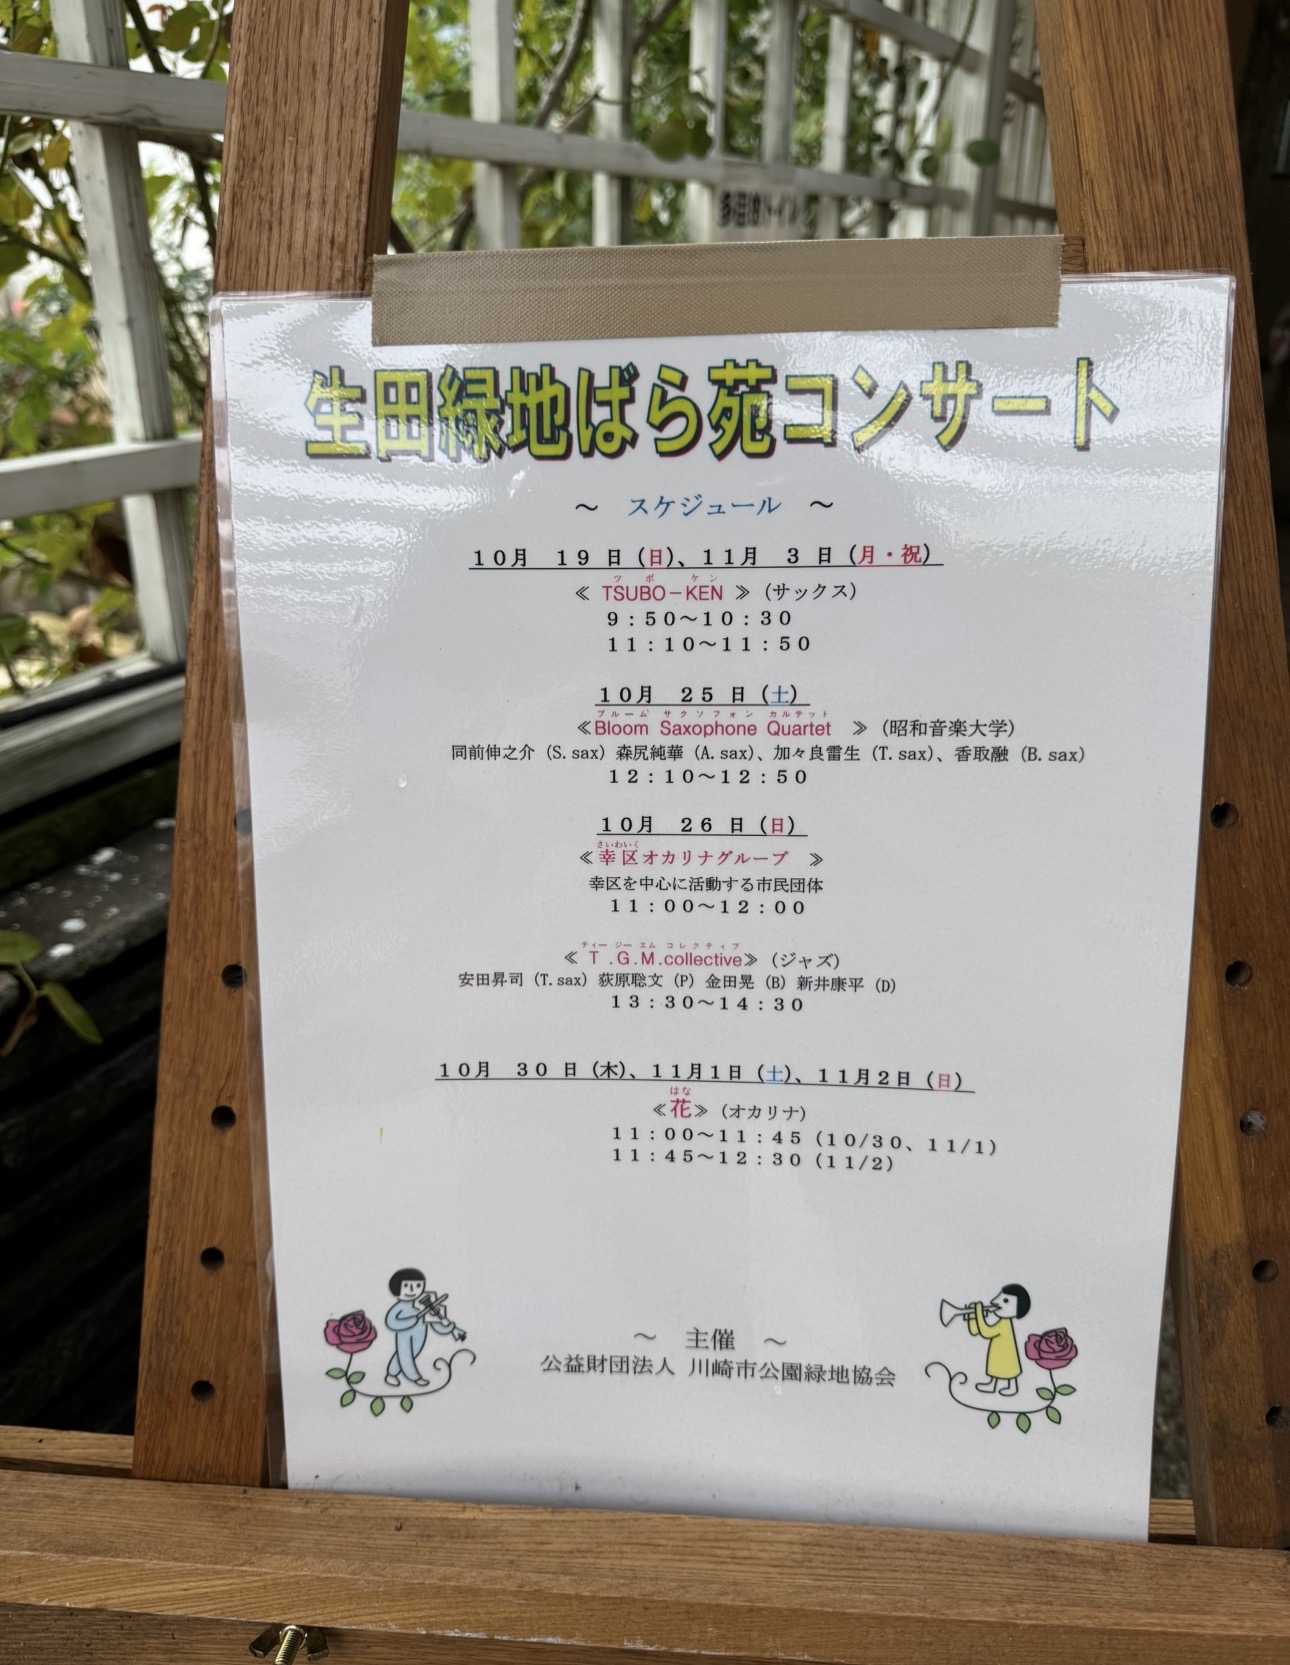 生田緑地ばら苑コンサート
～ スケジュール ～
10月 19 日（日）、11月 3 日（月・祝）
ツボ ケン
≪ TSUBO－KEN ≫（サックス）
9：50～10：30
11：10～11：50
10月 25 日（土）
ブルーム サクソフォン カルテット
≪Bloom Saxophone Quartet ≫（昭和音楽大学）
同前伸之介（S.sax）森尻純華（A.sax）、加々良雷生（T.sax）、香取融（B.sax）
12：10～12：50
10月 26 日（日）
さいわいく
≪幸区オカリナグループ ≫
幸区を中心に活動する市民団体
11：00～12：00
ティー ジー エム コレクティブ
≪ T .G.M.collective≫（ジャズ）
安田昇司（T.sax）荻原聡文（P）金田晃（B）新井康平（D）
13：30～14：30
10月 30 日（木）、11月1日（土）、11月2日（日）
はな
≪花≫（オカリナ）
11：00～11：45（10/30、11/1）
11：45～12：30（11/2）
～ 主催 ～
公益財団法人 川崎市公園緑地協会